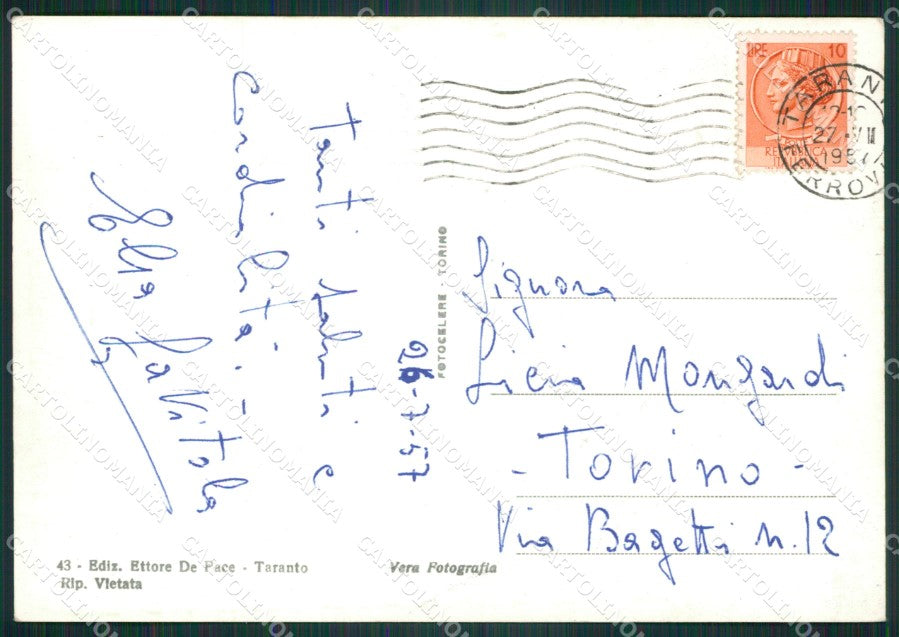 26-7-57
Tanti saluti e
Cordialità -
LIRE 10
REPUBBLICA
ITALIANA
TARANTO
27 VII
1957
FERROVIA
FOTOCELERE - TORINO
Signora
Licia Mongardi
- Torino -
Via Bagetti n. 12
43 - Ediz. Ettore De Pace - Taranto
Rip. Vietata
Vera Fotografia
CARTOLINOMANIA